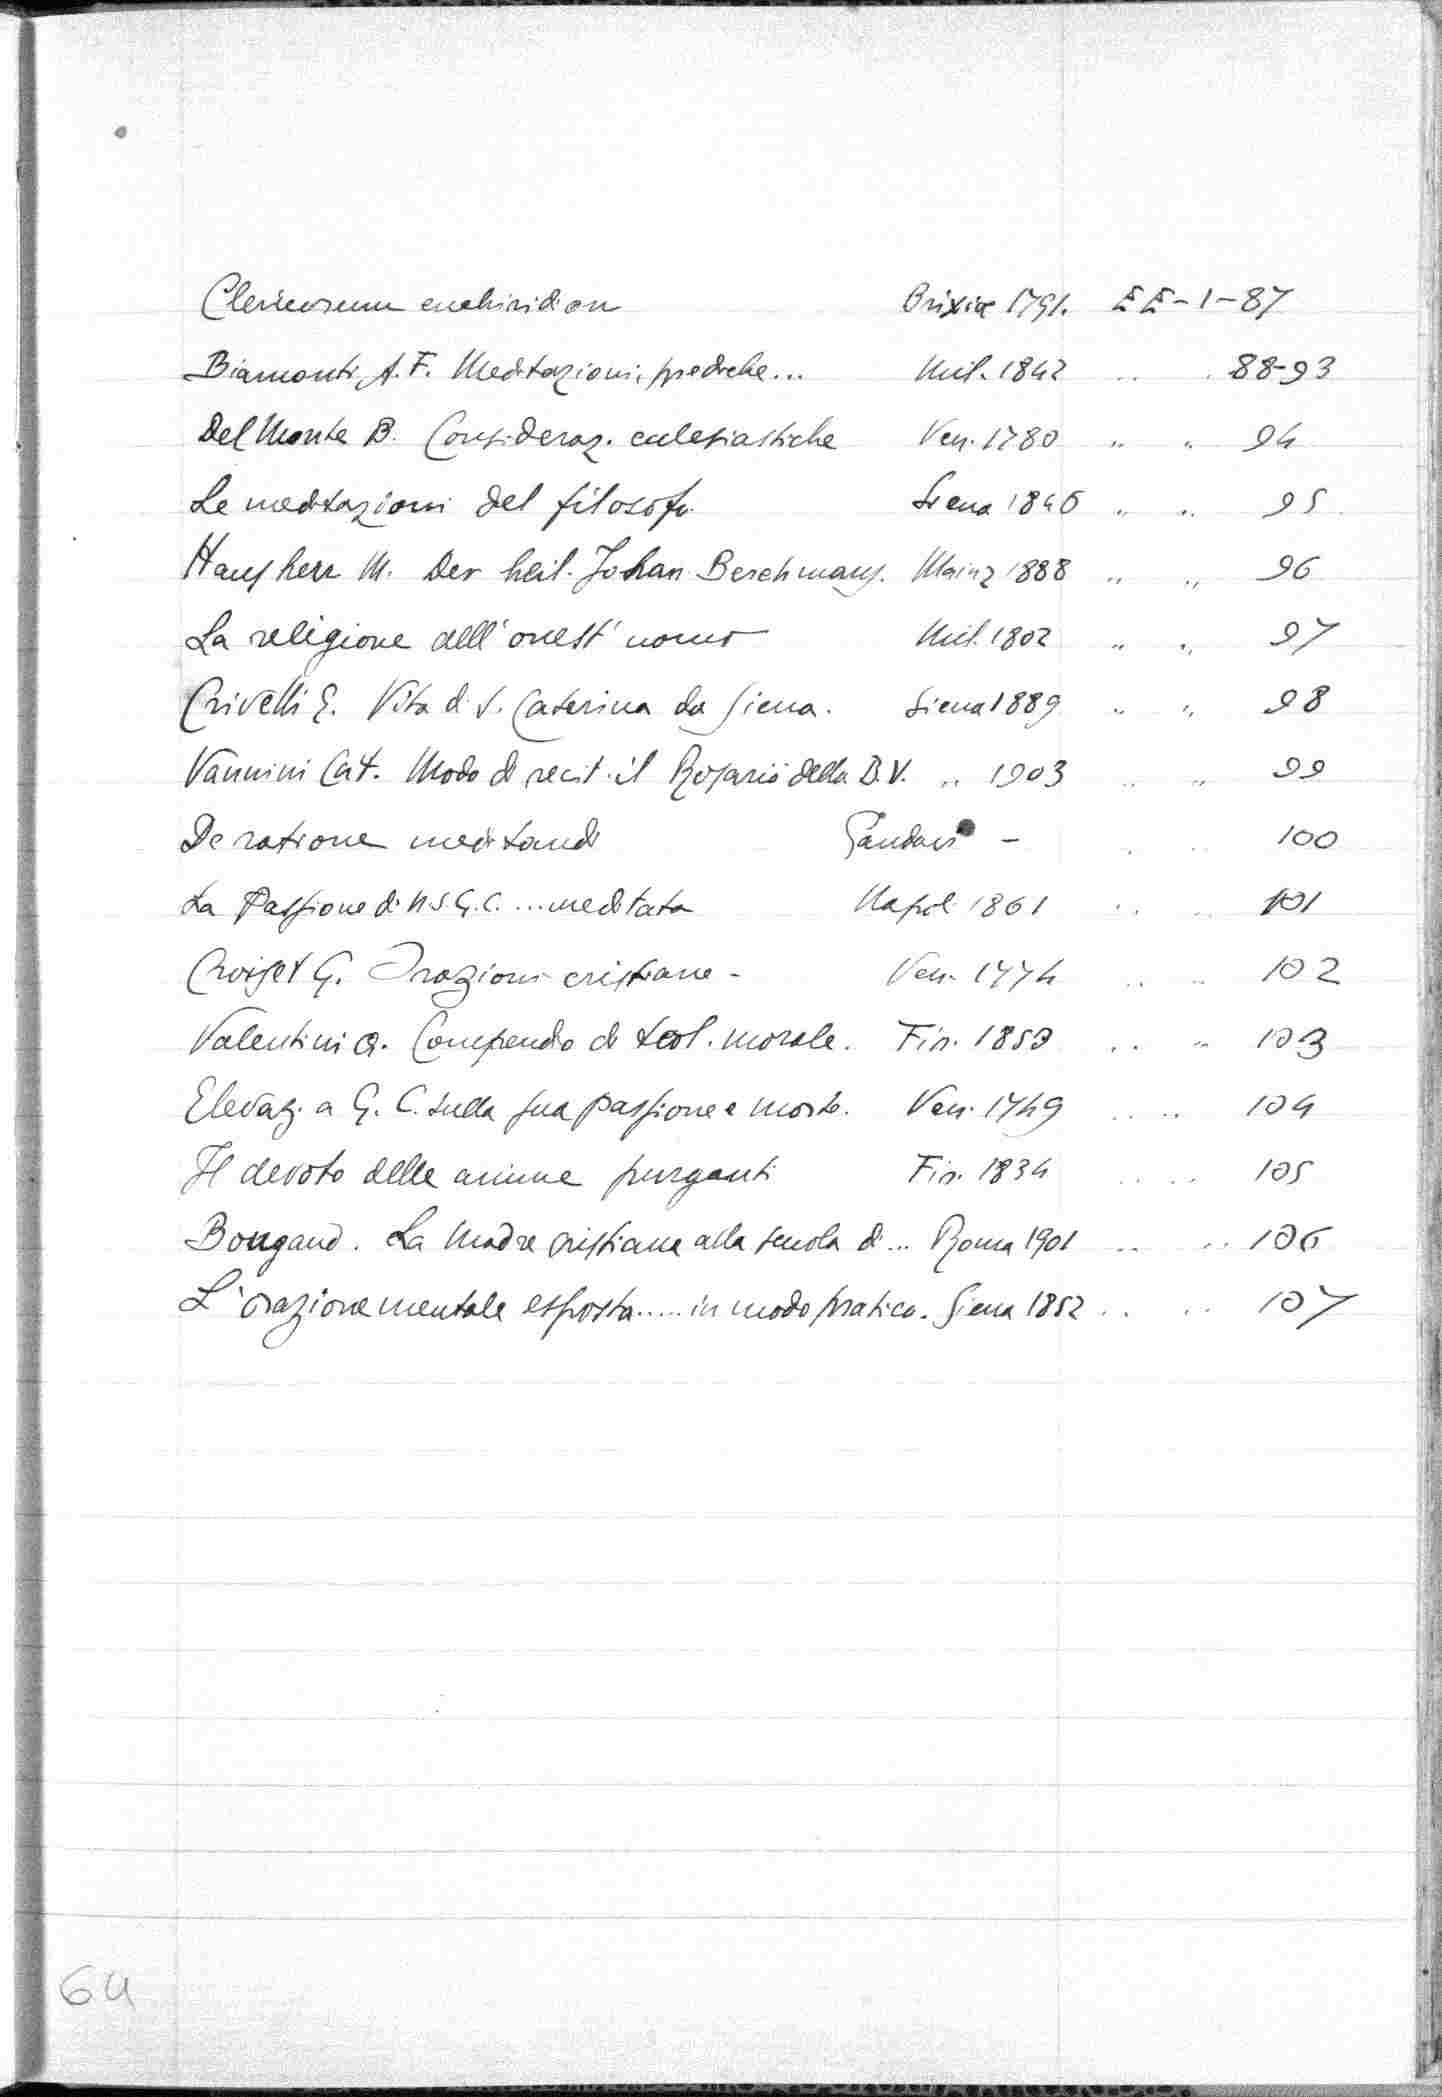 Clericorum enchiridion Brixiæ 1791. EE-1-87
Biamonti A. F. Meditazioni, prediche... Mil. 1842 .. . 88-93
Del Monte B. Consideraz. eclesiastiche Ven. 1780 " " 94
Le meditazioni del filosofo Siena 1846 " " 95
Hausherr M. Der heil. Johan Berchmans. Mainz 1888 " " 96
La religione dell'onest'uomo Mil. 1802 " " 97
Crivelli E. Vita di S. Caterina da Siena. Siena 1889 " " 98
Vannini Cat. Modo di recit. il Rosario della B.V. .. 1903 " " 99
De ratione meditandi Gandavi - . .. 100
La Passione di N.S.G.C. ... meditata Napoli 1861 .. .. 101
Croiset G. Orazioni cristiane - Ven. 1774 .. .. 102
Valentini A. Compendio di teol. morale. Fir. 1853 .. " 103
Elevaz. a G. C. sulla sua passione e morte. Ven. 1749 .. .. 104
Il devoto delle anime purganti Fir. 1834 .. .. 105
Bougaud. La Madre cristiana alla scuola di ... Roma 1901 .. .. 106
L'orazione mentale esposta..... in modo pratico. Siena 1852 .. .. 107
64